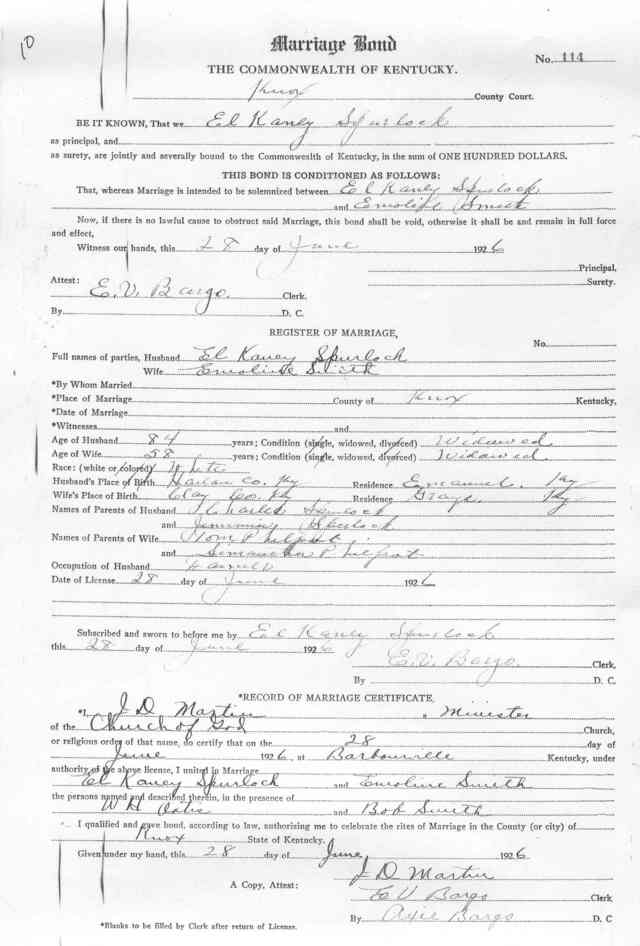 10
Marriage Bond
No. 114
THE COMMONWEALTH OF KENTUCKY.
Knox County Court.
BE IT KNOWN, That we El Kaney Spurlock
as principal, and
as surety, are jointly and severally bound to the Commonwealth of Kentucky, in the sum of ONE HUNDRED DOLLARS.
THIS BOND IS CONDITIONED AS FOLLOWS:
That, whereas Marriage is intended to be solemnized between El Kaney Spurlock
and Emoline Smith
Now, if there is no lawful cause to obstruct said Marriage, this bond shall be void, otherwise it shall be and remain in full force
and effect,
Witness our hands, this 28 day of June 1926
Principal,
Surety.
Attest:
E. V. Bargo. Clerk.
By D. C.
REGISTER OF MARRIAGE,
No.
Full names of parties, Husband El Kaney Spurlock
Wife Emoline Smith
*By Whom Married
*Place of Marriage County of Knox Kentucky,
*Date of Marriage
*Witnesses and
Age of Husband 84 years; Condition (single, widowed, divorced) Widowed
Age of Wife 58 years; Condition (single, widowed, divorced) Widowed.
Race: (white or colored) White
Husband's Place of Birth Harlan Co. Ky Residence Emanuel Ky
Wife's Place of Birth Clay Co. Ky Residence Grays Ky
Names of Parents of Husband Charles Spurlock
and Spurlock
Names of Parents of Wife Tom Philpot
and Philpot
Occupation of Husband
Date of License 28 day of June 1926
Subscribed and sworn to before me by El Kaney Spurlock
this 28 day of June 1926
E. V. Bargo. Clerk,
By D. C.
*RECORD OF MARRIAGE CERTIFICATE,
*I, J D Martin, Minister
of the Church of God Church,
or religious order of that name, do certify that on the 28 day of
June 1926, at Barbourville Kentucky, under
authority of the above license, I united in Marriage
El Kaney Spurlock and Emoline Smith
the persons named and described therein, in the presence of
W H and Bob Smith
I qualified and gave bond, according to law, authorizing me to celebrate the rites of Marriage in the County (or city) of
Knox State of Kentucky.
Given under my hand, this 28 day of June 1926
J D Martin
A Copy, Attest: E V Bargo Clerk
By Bargo D. C
*Blanks to be filled by Clerk after return of License.